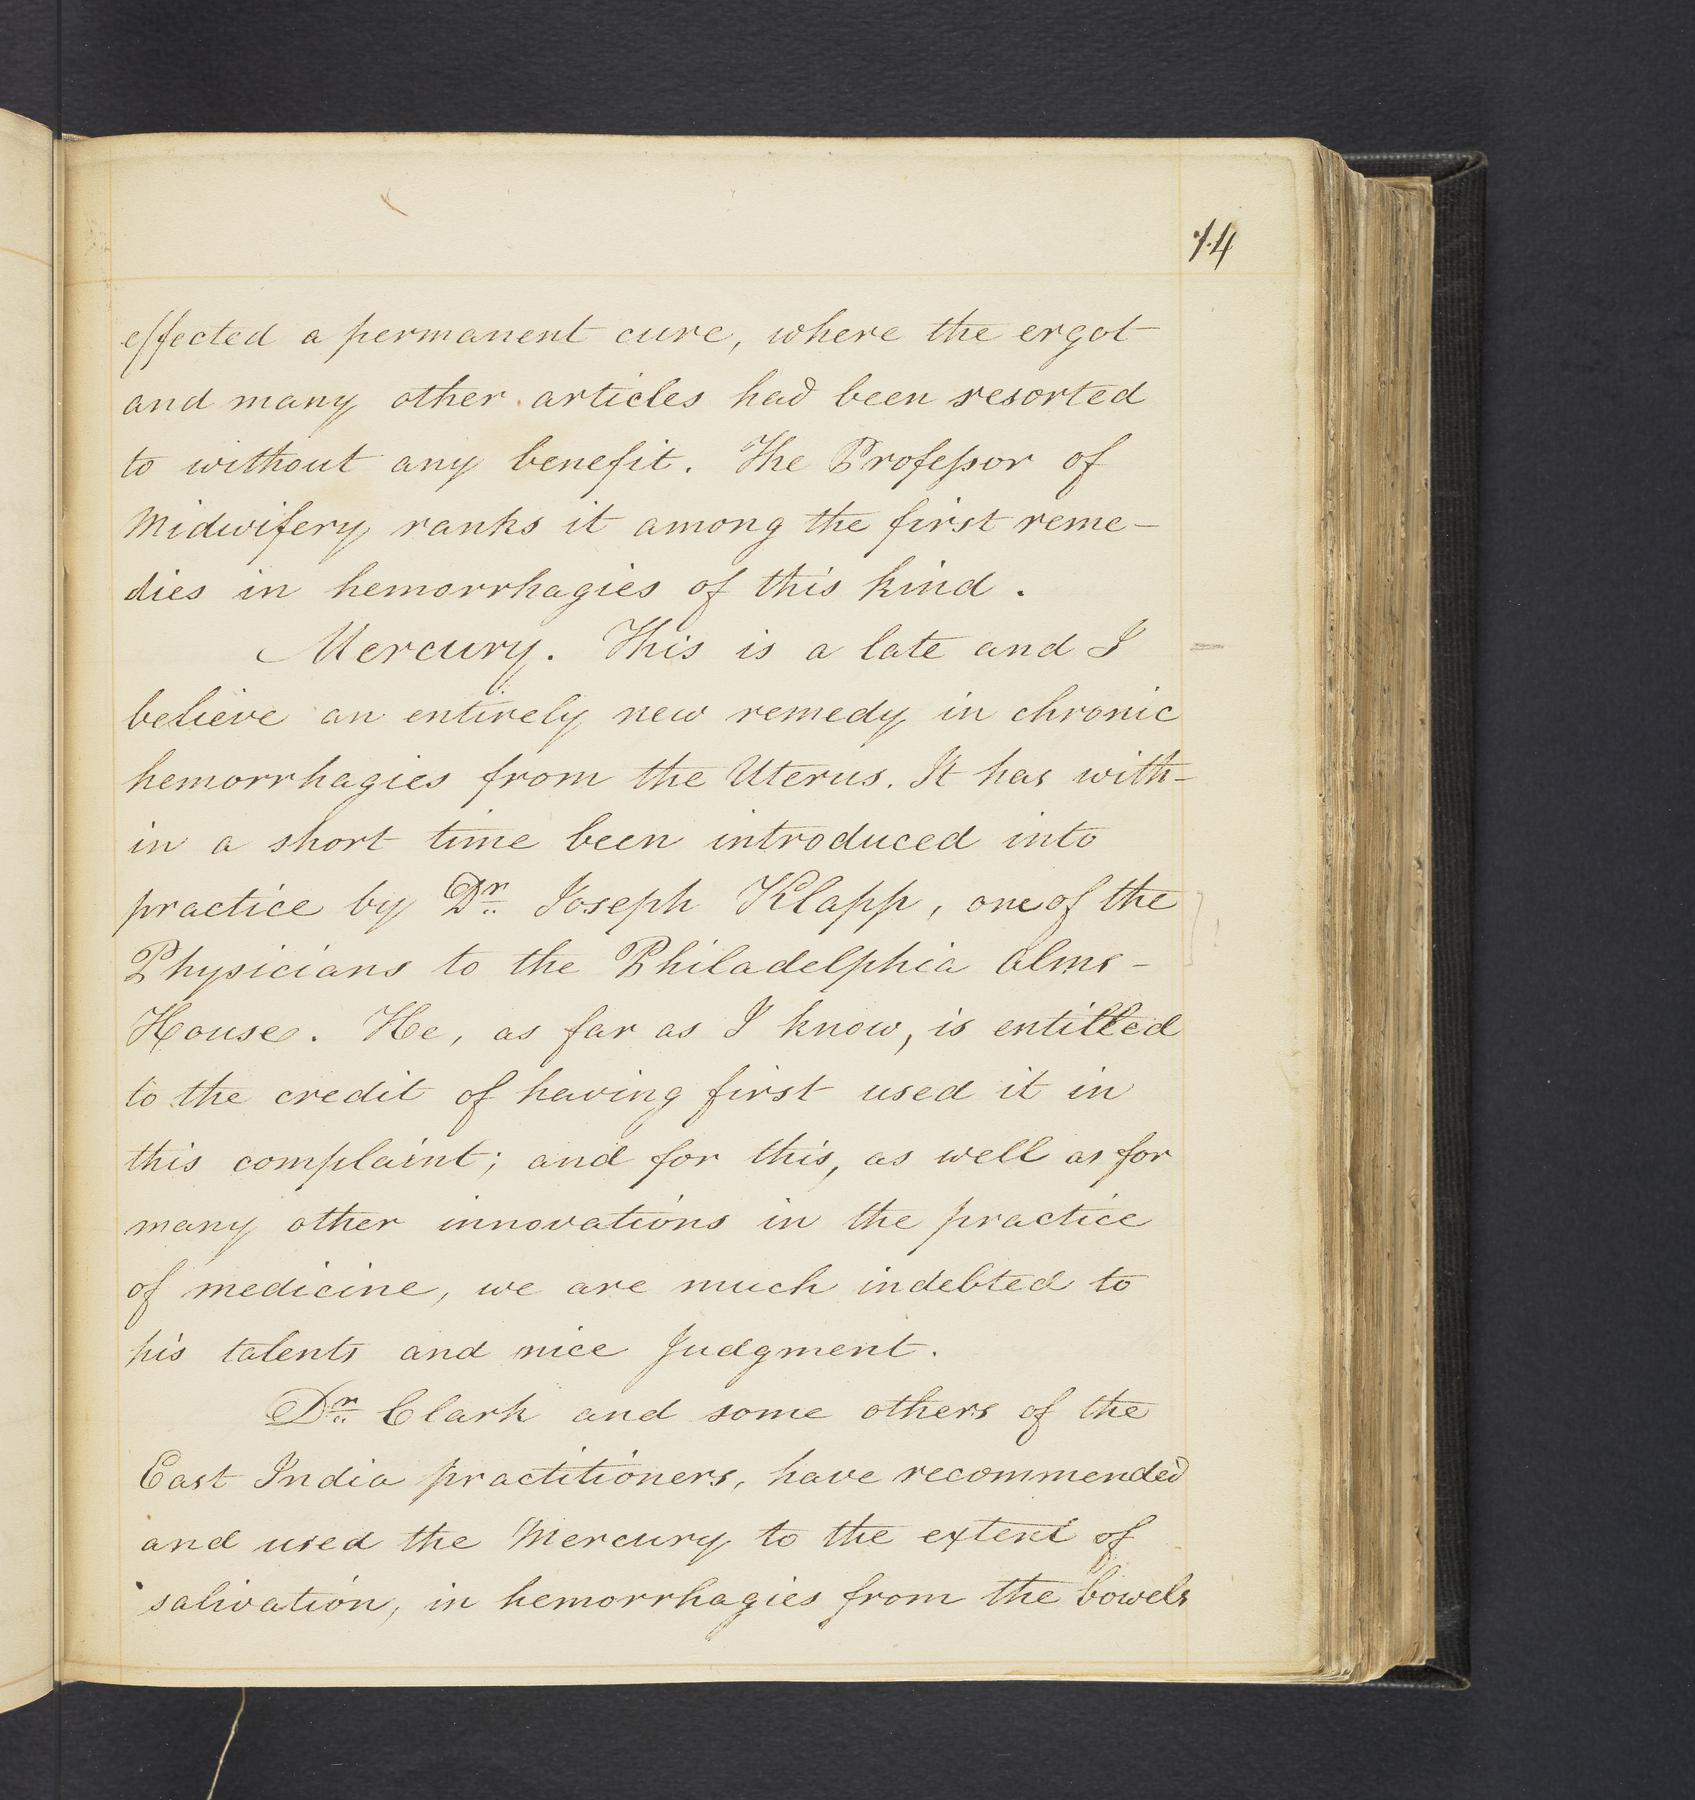 14
effected a permanent cure, where the ergot
and many other articles had been resorted
to without any benefit. The Professor of
Midwifery ranks it among the first reme-
dies in hemorrhagies of this kind.
Mercury. This is a late and I
believe an entirely new remedy in chronic
hemorrhagies from the Uterus. It has with-
in a short time been introduced into
practice by Dr. Joseph Klapp, one of the
Physicians to the Philadelphia Alms-
House. He, as far as I know, is entitled
to the credit of having first used it in
this complaint; and for this, as well as for
many other innovations in the practice
of medicine, we are much indebted to
his talents and nice Judgment.
Dr. Clark and some others of the
East India practitioners, have recommended
and used the Mercury to the extent of
salivation, in hemorrhagies from the bowels